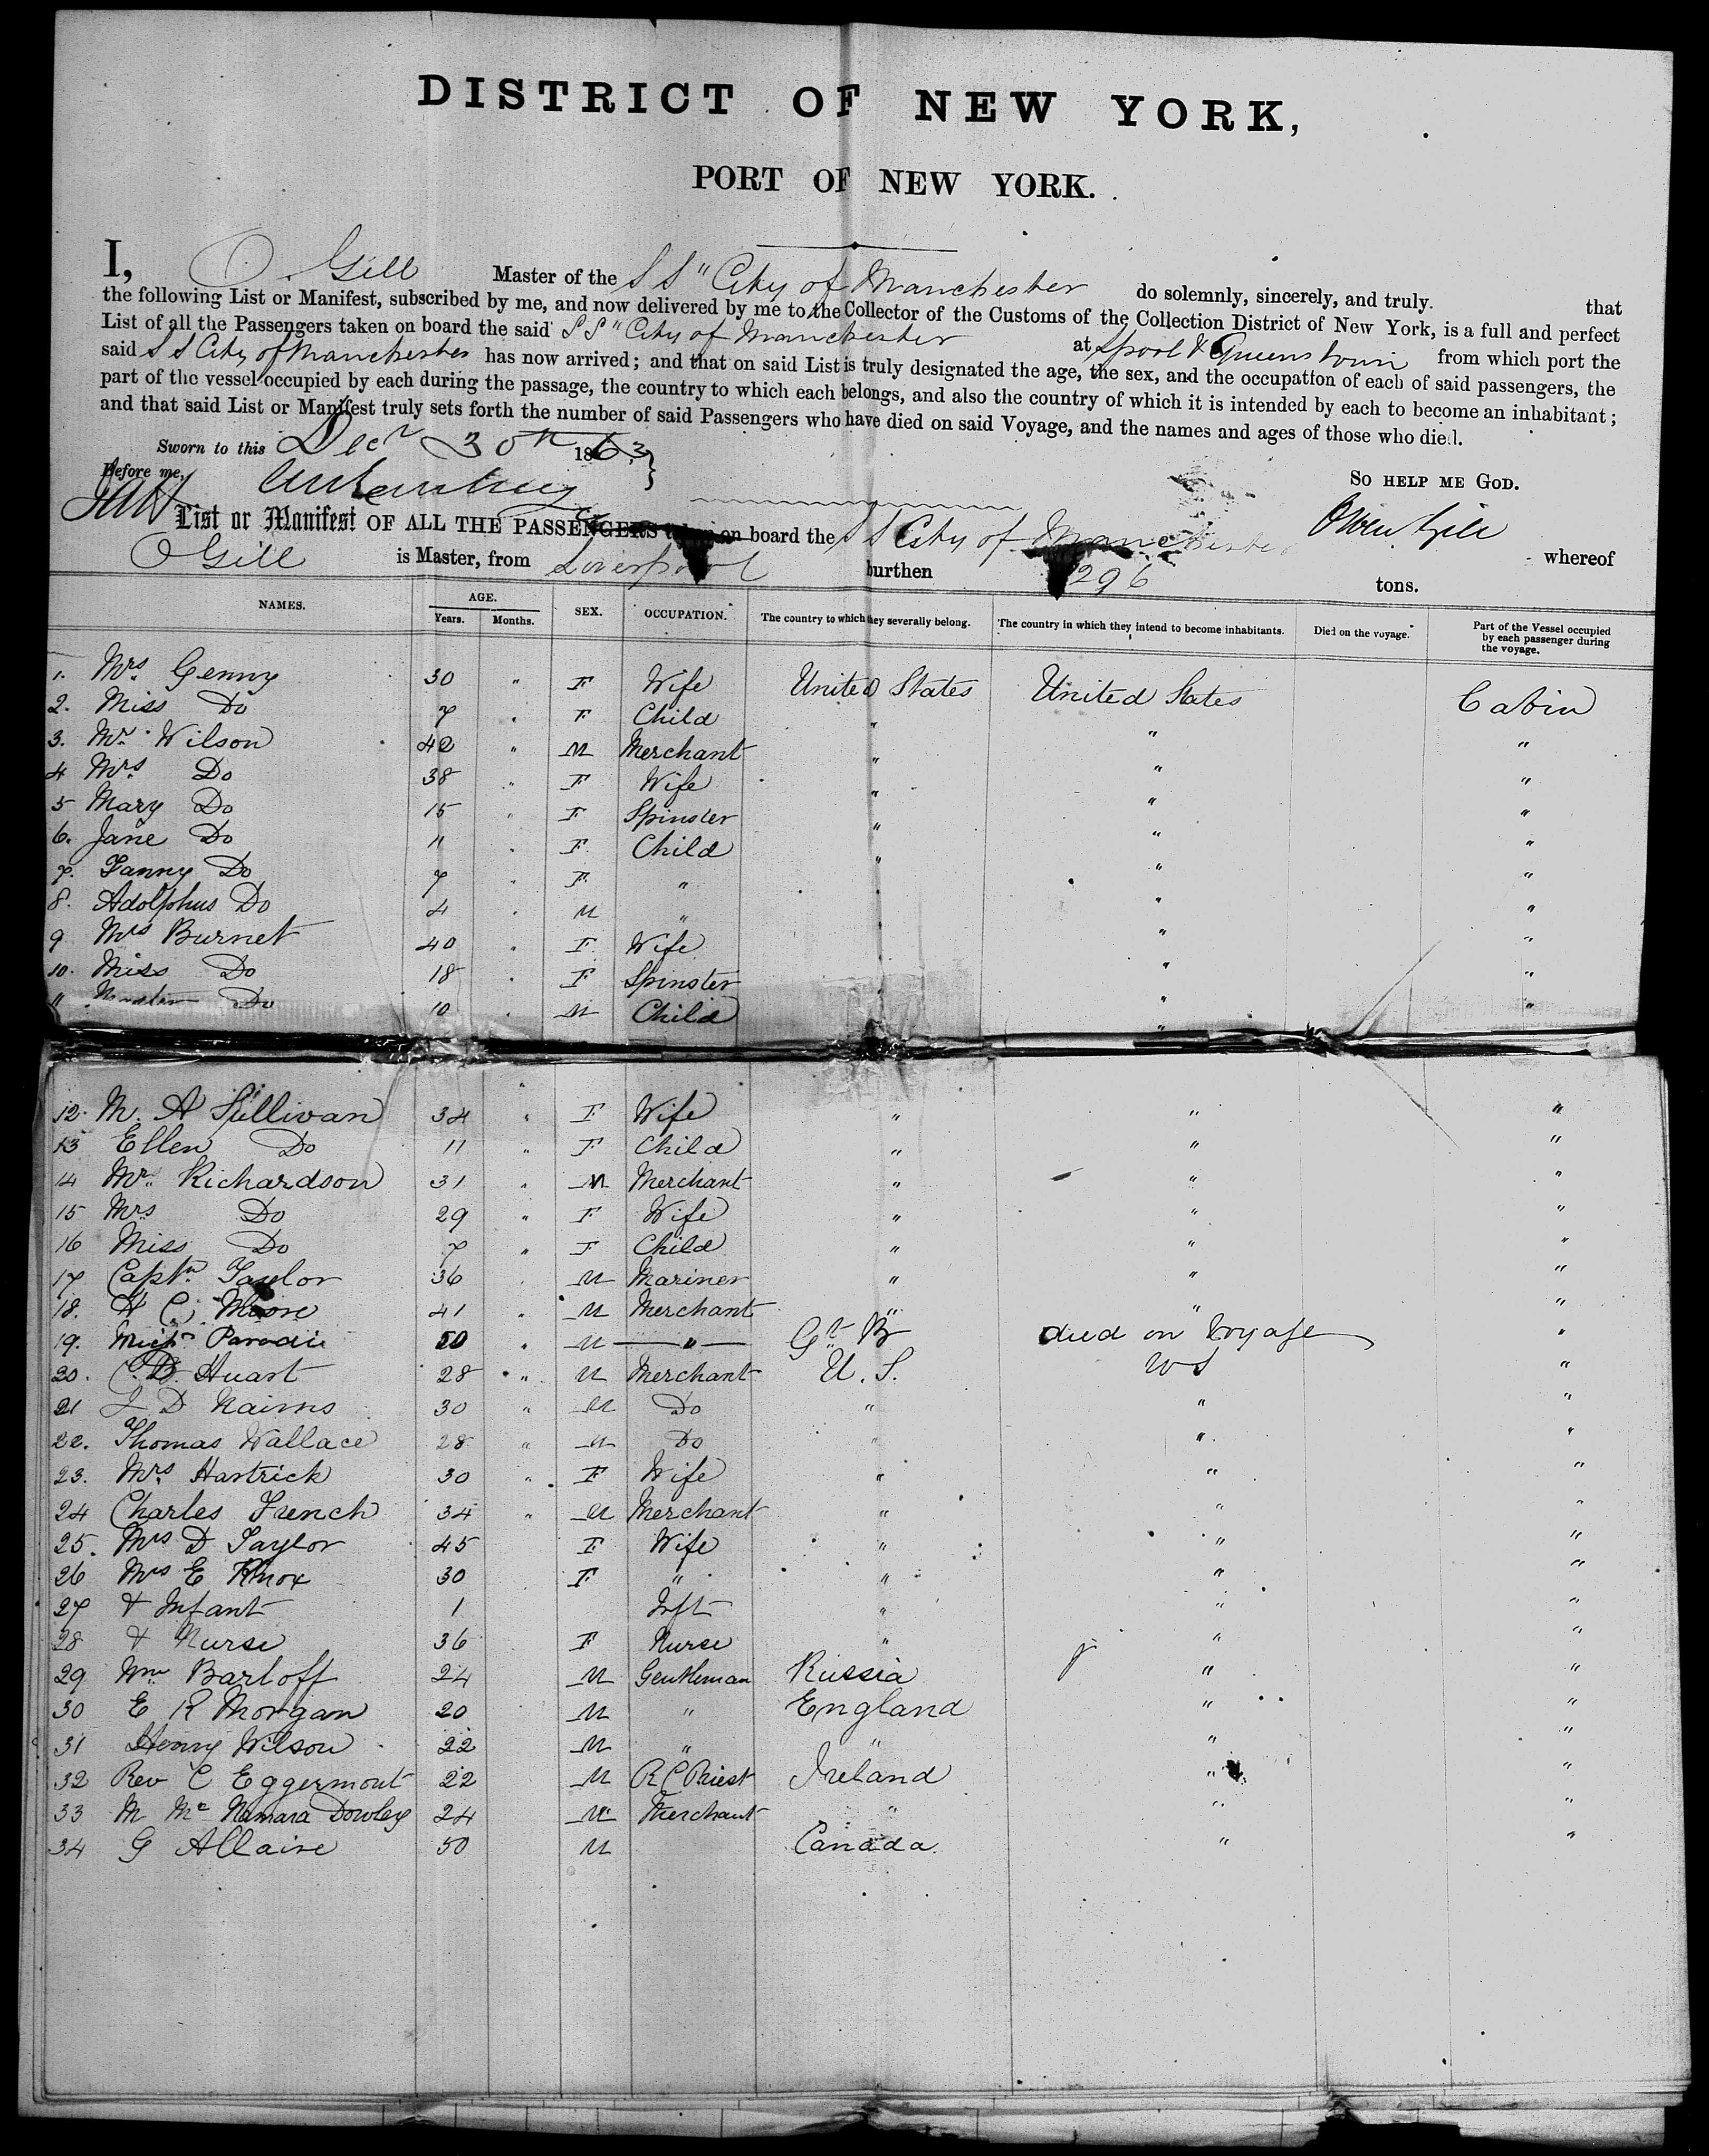 DISTRICT OF NEW YORK,
PORT OF NEW YORK.
I, O. Gill Master of the S S "City of Manchester do solemnly, sincerely, and truly. that
the following List or Manifest, subscribed by me, and now delivered by me to the Collector of the Customs of the Collection District of New York, is a full and perfect
List of all the Passengers taken on board the said S S "City of Manchester at Lpool & Queenstown from which port the
said S S City of Manchester has now arrived; and that on said List is truly designated the age, the sex, and the occupation of each of said passengers, the
part of the vessel occupied by each during the passage, the country to which each belongs, and also the country of which it is intended by each to become an inhabitant;
and that said List or Manifest truly sets forth the number of said Passengers who have died on said Voyage, and the names and ages of those who died.
Sworn to this Decr 30th 1863
Before me, So HELP ME GOD.
Owen Gill
List or Manifest OF ALL THE PASSENGERS taken on board the S S City of Manchester whereof
O Gill is Master, from Liverpool burthen 296 tons.
NAMES. AGE. Years. Months. SEX. OCCUPATION. The country to which they severally belong. The country in which they intend to become inhabitants. Died on the voyage. Part of the Vessel occupied by each passenger during the voyage.
1. Mrs Genny 30 " F Wife United States United States Cabin
2. Miss Do 7 " F Child " " "
3. Mr Wilson 42 " M Merchant " " "
4 Mrs Do 38 " F Wife " " "
5 Mary Do 15 " F Spinster " " "
6. Jane Do 11 " F Child " " "
7. Fanny Do 7 " F " " " "
8. Adolphus Do 4 " M " " " "
9 Mrs Burnet 40 " F Wife " " "
10. Miss Do 18 " F Spinster " " "
11 Master Do 10 " M Child " " "
12. M. A Sullivan 34 " F Wife " " "
13 Ellen Do 11 " F Child " " "
14 Mr. Richardson 31 " M Merchant " " "
15 Mrs Do 29 " F Wife " " "
16 Miss Do 7 " F Child " " "
17 Captn Taylor 36 " M Mariner " " "
18. H C Moore 41 " M Merchant " " "
19. 50 " M " Gt B died on Voyage "
20. C. D. Huart 28 " M Merchant U. S. U S "
21 J D Nairns 30 " M Do " " "
22. Thomas Wallace 28 " M Do " " "
23. Mrs Hartrick 30 " F Wife " " "
24 Charles French 34 " M Merchant " " "
25. Mrs D Taylor 45 F Wife " " "
26 Mrs E Knox 30 F " " " "
27 & Infant 1 Inft " " "
28 & Nurse 36 F Nurse " " "
29 Wm Barloff 24 M Gentleman Russia " "
30 E R Morgan 20 M " England " "
31 Henry Wilson 22 M " " " "
32 Rev C Eggermont 22 M R C Priest Ireland " "
33 M Mc Namara Dowley 24 M Merchant " " "
34 G Allaire 50 M Canada. " "